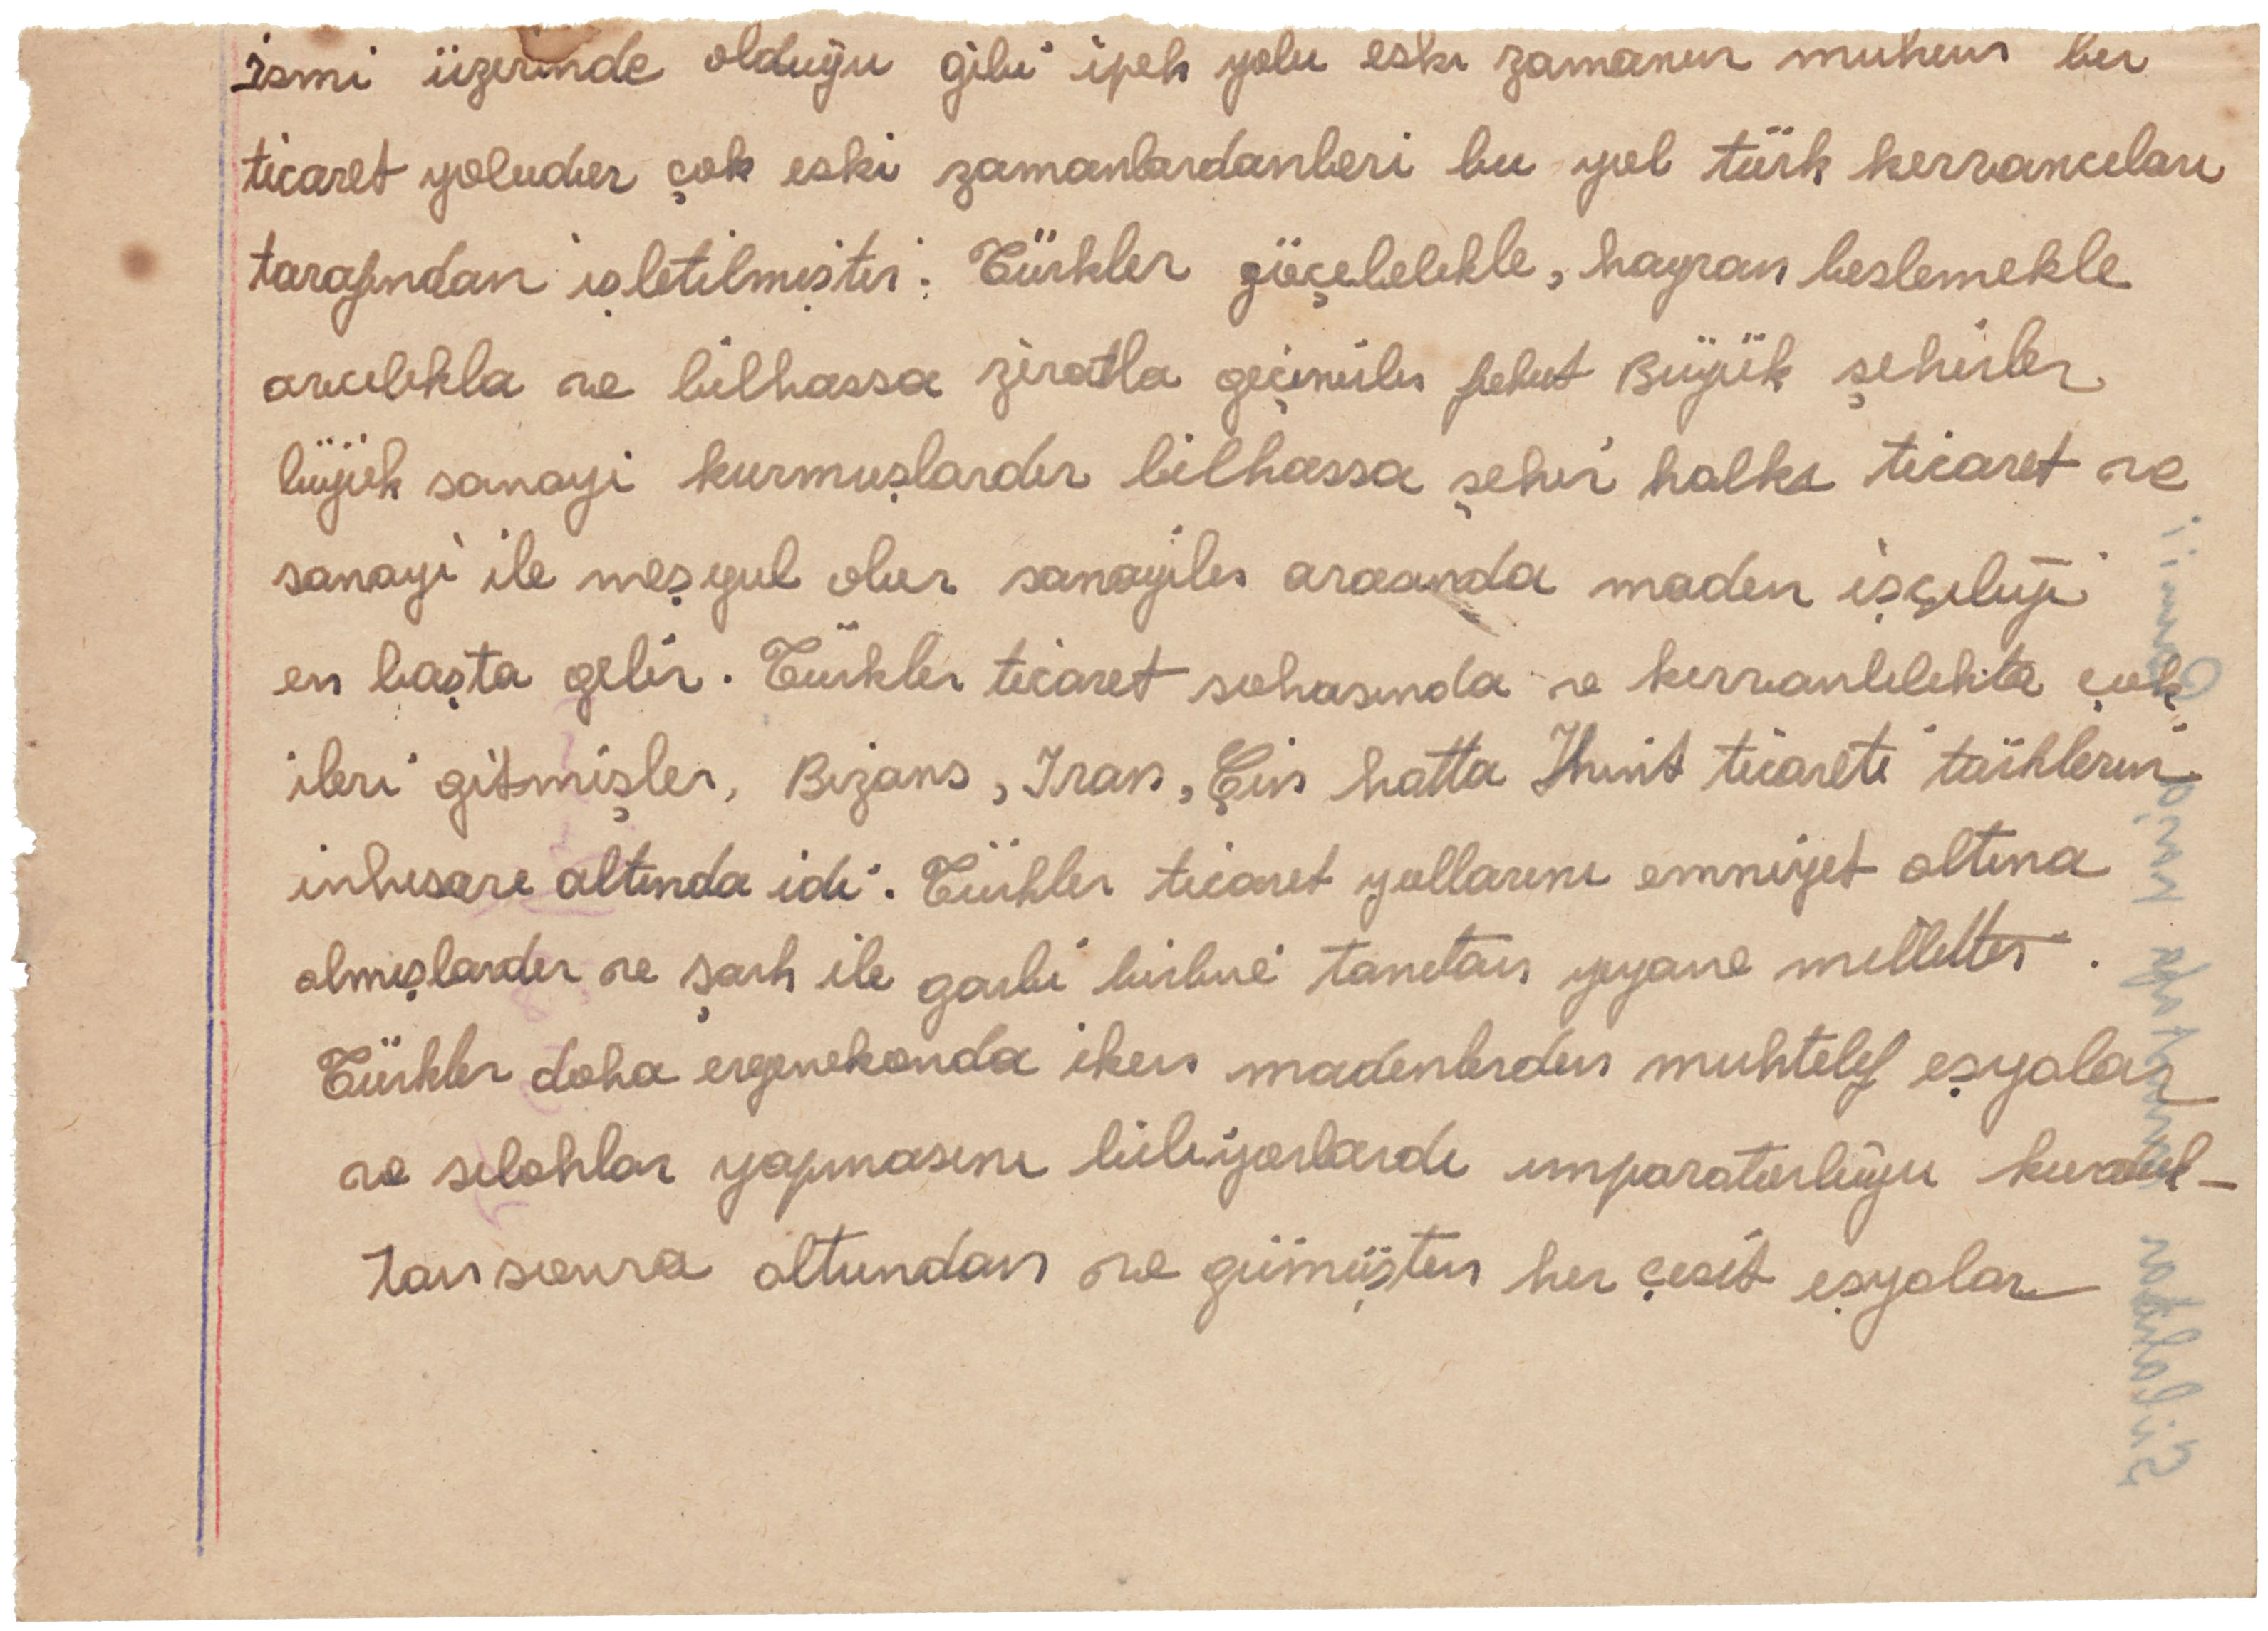 ismi üzerinde olduğu gibi ipek yolu eski zamanın muhim bir
ticaret yoludur çok eski zamanlardanberi bu yol türk kervancıları
tarafından işletilmiştir. Türkler göçebelikle, hayvan beslemekle
avcılıkla ve bilhassa ziratla geçinirler fakat Büyük şehirler
büyük sanayi kurmuşlardır bilhassa şehir halkı ticaret ve
sanayi ile meşgul olur sanayiler arasında maden işçiliği
en başta gelir. Türkler ticaret sahasında ve kervanlılıkta çok
ileri gitmişler, Bizans, Iran, Çin hatta Hint ticareti türklerin
inhisarı altında idi. Türkler ticaret yollarını emniyet altına
almışlardır ve şark ile garbi birbiri tanıtan yegane millettir.
Türkler daha ergenekonda iken madenlerden muhtelif eşyalar
ve silahlar yapmasını biliyorlardı imparatorluğu kurduk-
tan sonra altundan ve gümüşten her çesit eşyalar